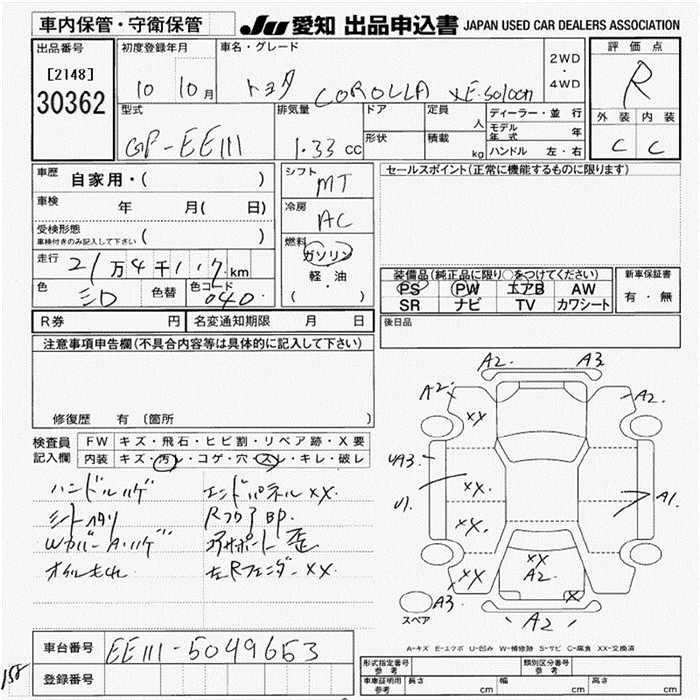 車内保管・守衛保管 JU 愛知 出品申込書 JAPAN USED CAR DEALERS ASSOCIATION
出品番号 初度登録年月 車名・グレード 2WD ・ 4WD 評価点
[2148]
30362
10 10月 トヨタ COROLLA XE.Saloon R
型式 排気量 ドア 定員 人 ディーラー・並行 外装 内装
GF-EE111 1.33 CC 形状 積載 kg モデル年式 年 C C
ハンドル 左・右
車歴 自家用・( ) シフト MT セールスポイント(正常に機能するものに限ります)
車検 年 月( 日) 冷房 AC
受検形態 車検付きのみ記入して下さい ( )
燃料 ガソリン
軽・油
( )
走行 21万4千117km
色 シロ 色替 色コード 040
装備品(純正品に限り○をつけてください) 新車保証書
PS PW エアB AW 有・無
SR ナビ TV カワシート
R券 円 名変通知期限 月 日 後日品
注意事項申告欄(不具合内容等は具体的に記入して下さい)
修復歴 有 (箇所 )
検査員記入欄 FW キズ・飛石・ヒビ割・リペア跡・X要
内装 キズ・汚レ・コゲ・穴・スレ・キレ・破レ
ハンドルハゲ エンドパネルXX.
シートヘタリ RフロアBP.
WカバーA・ハゲ 歪
オイルもれ 左RフェンダーXX.
A2. A3
A2. A2.
XX
XX.
XX.
XX
A1.
XX
A2
X
A3.
A2
スペア
A-キズ E-エクボ U-凹み W-補修跡 S-サビ C-腐食 XX-交換済
車台番号 EE111-5049653
登録番号
158
型式指定番号 参考 類別区分番号 参考
車庫証明用 参考 長さ cm 幅 cm 高さ cm